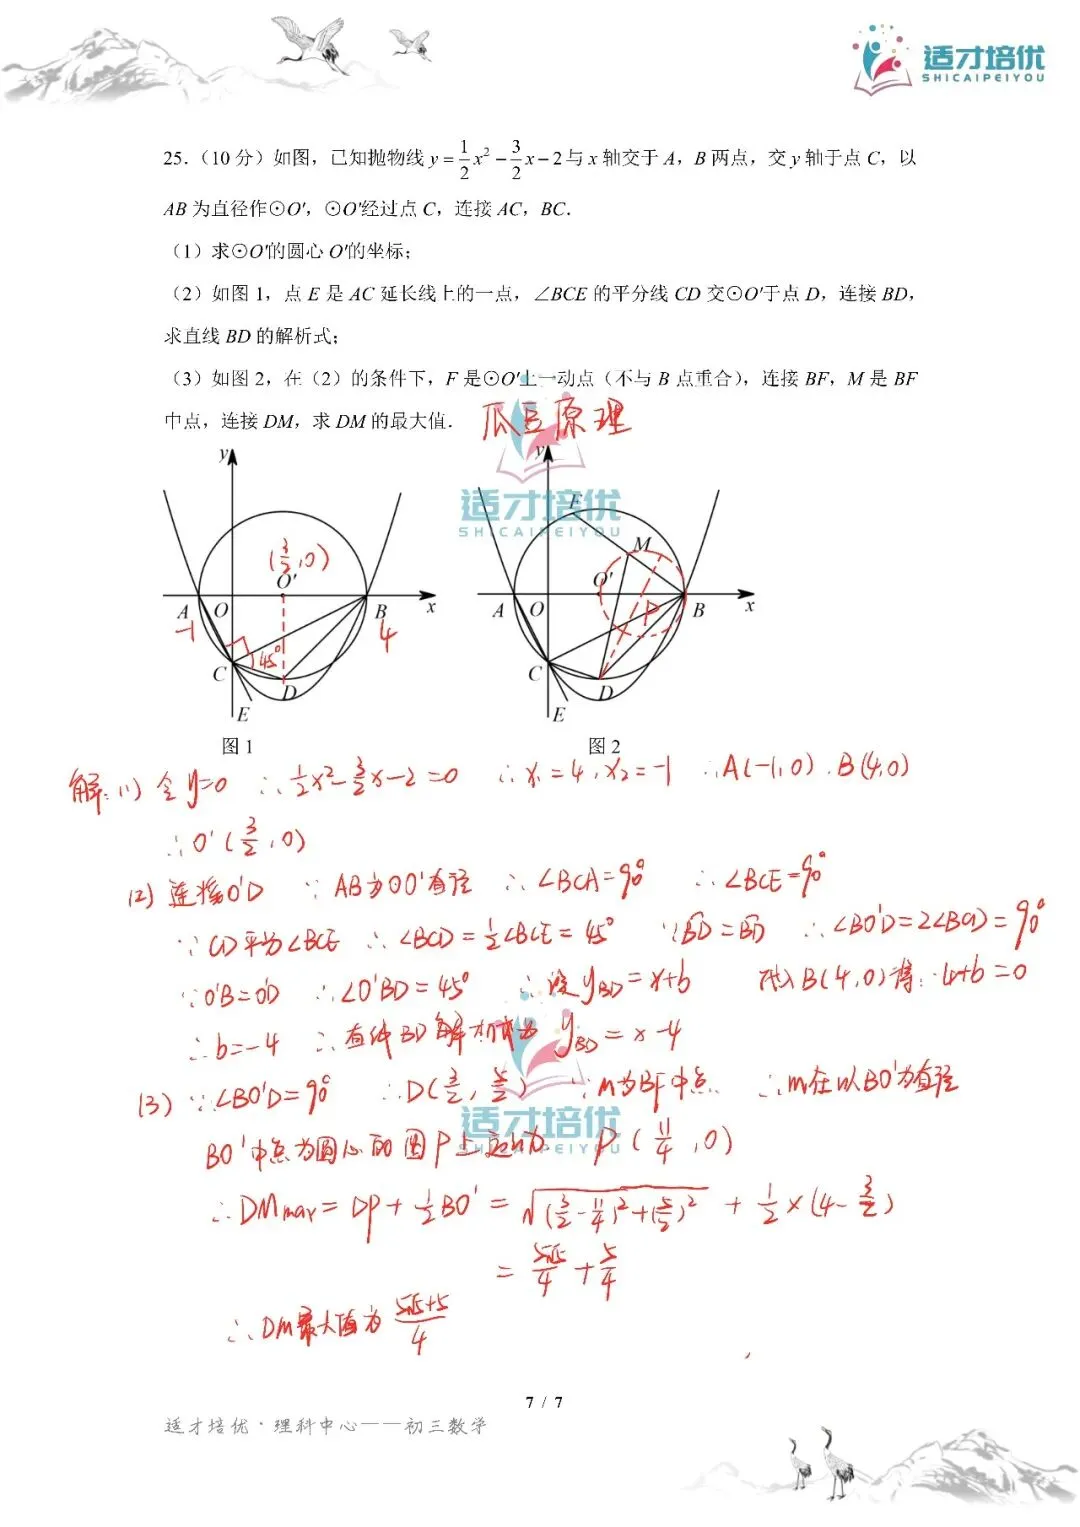 适才培优
SHICAIPEIYOU
25.（10 分）如图，已知抛物线 y=1/2x²-3/2x-2 与 x 轴交于 A，B 两点，交 y 轴于点 C，以
AB 为直径作⊙O′，⊙O′经过点 C，连接 AC，BC．
（1）求⊙O′的圆心 O′的坐标；
（2）如图 1，点 E 是 AC 延长线上的一点，∠BCE 的平分线 CD 交⊙O′于点 D，连接 BD，
求直线 BD 的解析式；
（3）如图 2，在（2）的条件下，F 是⊙O′上一动点（不与 B 点重合），连接 BF，M 是 BF
中点，连接 DM，求 DM 的最大值． 瓜豆原理
y
(3/2,0)
O′
A O B x
-1 4
45°
C D
E
图 1
适才培优
SHICAIPEIYOU
y
F
M
O′
A O P B x
C D
E
图 2
解:(1) 令y=0 ∴1/2x²-3/2x-2=0 ∴x₁=4,x₂=-1 ∴A(-1,0).B(4,0)
∴O′(3/2,0)
(2) 连接O′D ∵AB为⊙O′直径 ∴∠BCA=90° ∴∠BCE=90°
∵CD平分∠BCE ∴∠BCD=1/2∠BCE=45° ∵BD=BD ∴∠BO′D=2∠BCD=90°
∵O′B=O′D ∴∠O′BD=45° ∴设yBD=x+b 代入B(4,0)得:4+b=0
∴b=-4 ∴直线BD解析式为 yBD=x-4
(3) ∵∠BO′D=90° ∴D(3/2, 5/2) ∵M为BF中点 ∴M在以BO′为直径
BO′中点为圆心的圆P上运动 P(11/4,0)
∴DMmax=DP+1/2BO′=√(3/2-11/4)²+(5/2)² +1/2×(4-3/2)
=5√5/4+5/4
∴DM最大值为 5√5+5/4
适才培优
SHICAIPEIYOU
7 / 7
适才培优·理科中心——初三数学